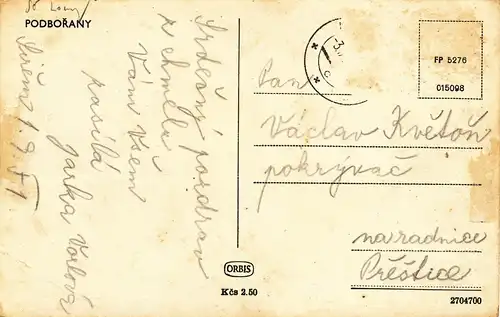 PODBOŘANY
Srdečný pozdrav
z chmele
Vám všem
zasílá
Jarka
1.9.51
3.
FP 5276
015098
Pan
Václav Květoň
pokrývač
na radnice
Přeštice
ORBIS
Kčs 2.50
2704700